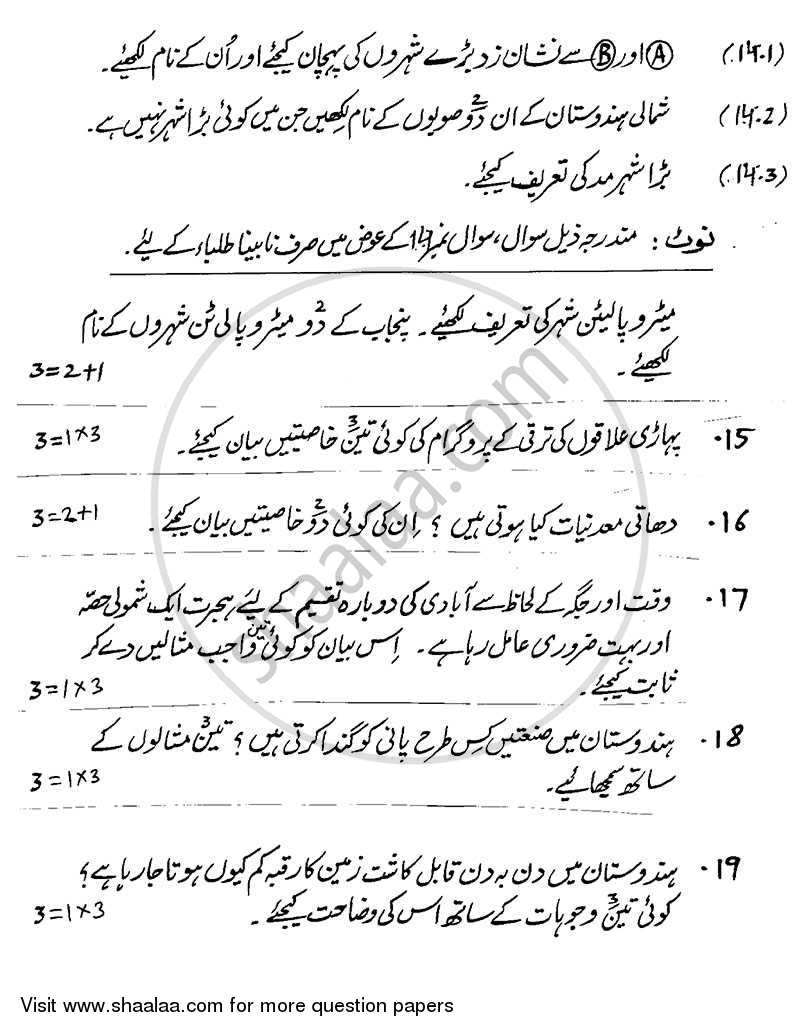 (14.1) Ⓐ اور Ⓑ سے نشان زد بڑے شہروں کی پہچان کیجئے اور اُن کے نام لکھئے۔
(14.2) شمالی ہندوستان کے ان دو2 صوبوں کے نام لکھیں جن میں کوئی بڑا شہر نہیں ہے۔
(14.3) بڑا شہر مد کی تعریف کیجئے۔
نوٹ : مندرجہ ذیل سوال، سوال نمبر 14 کے عوض میں صرف نابینا طلباء کے لیٔے۔
میٹروپالیٹن شہر کی تعریف لکھیٔے۔ پنجاب کے دو2 میٹروپالی ٹن شہروں کے نام
لکھیٔے۔ 3=2+1
15. پہاڑی علاقوں کی ترقی کے پروگرام کی کوئی تین3 خاصیتیں بیان کیجئے۔ 3=1×3
16. دھاتی معدنیات کیا ہوتی ہیں ؟ اِن کی کوئی دو2 خاصیتیں بیان کیجئے۔ 3=2+1
17. وقت اور جگہ کے لحاظ سے آبادی کی دوبارہ تقسیم کے لیٔے ہجرت ایک شمولی حصّہ
اور بہت ضروری عامل رہا ہے۔ اِس بیان کو کوئی تین واجب مثالیں دے کر
ثابت کیجئے۔ 3=1×3
18. ہندوستان میں صنعتیں کِس طرح پانی کو گندا کرتی ہیں ؟ تین3 مثالوں کے
ساتھ سمجھائیے۔ 3=1×3
19. ہندوستان میں دن بہ دن قابل کاشت زمین کا رقبہ کم کیوں ہوتا جا رہا ہے؟
کوئی تین3 وجوہات کے ساتھ اس کی وضاحت کیجئے۔ 3=1×3
shaalaa.com
Visit www.shaalaa.com for more question papers